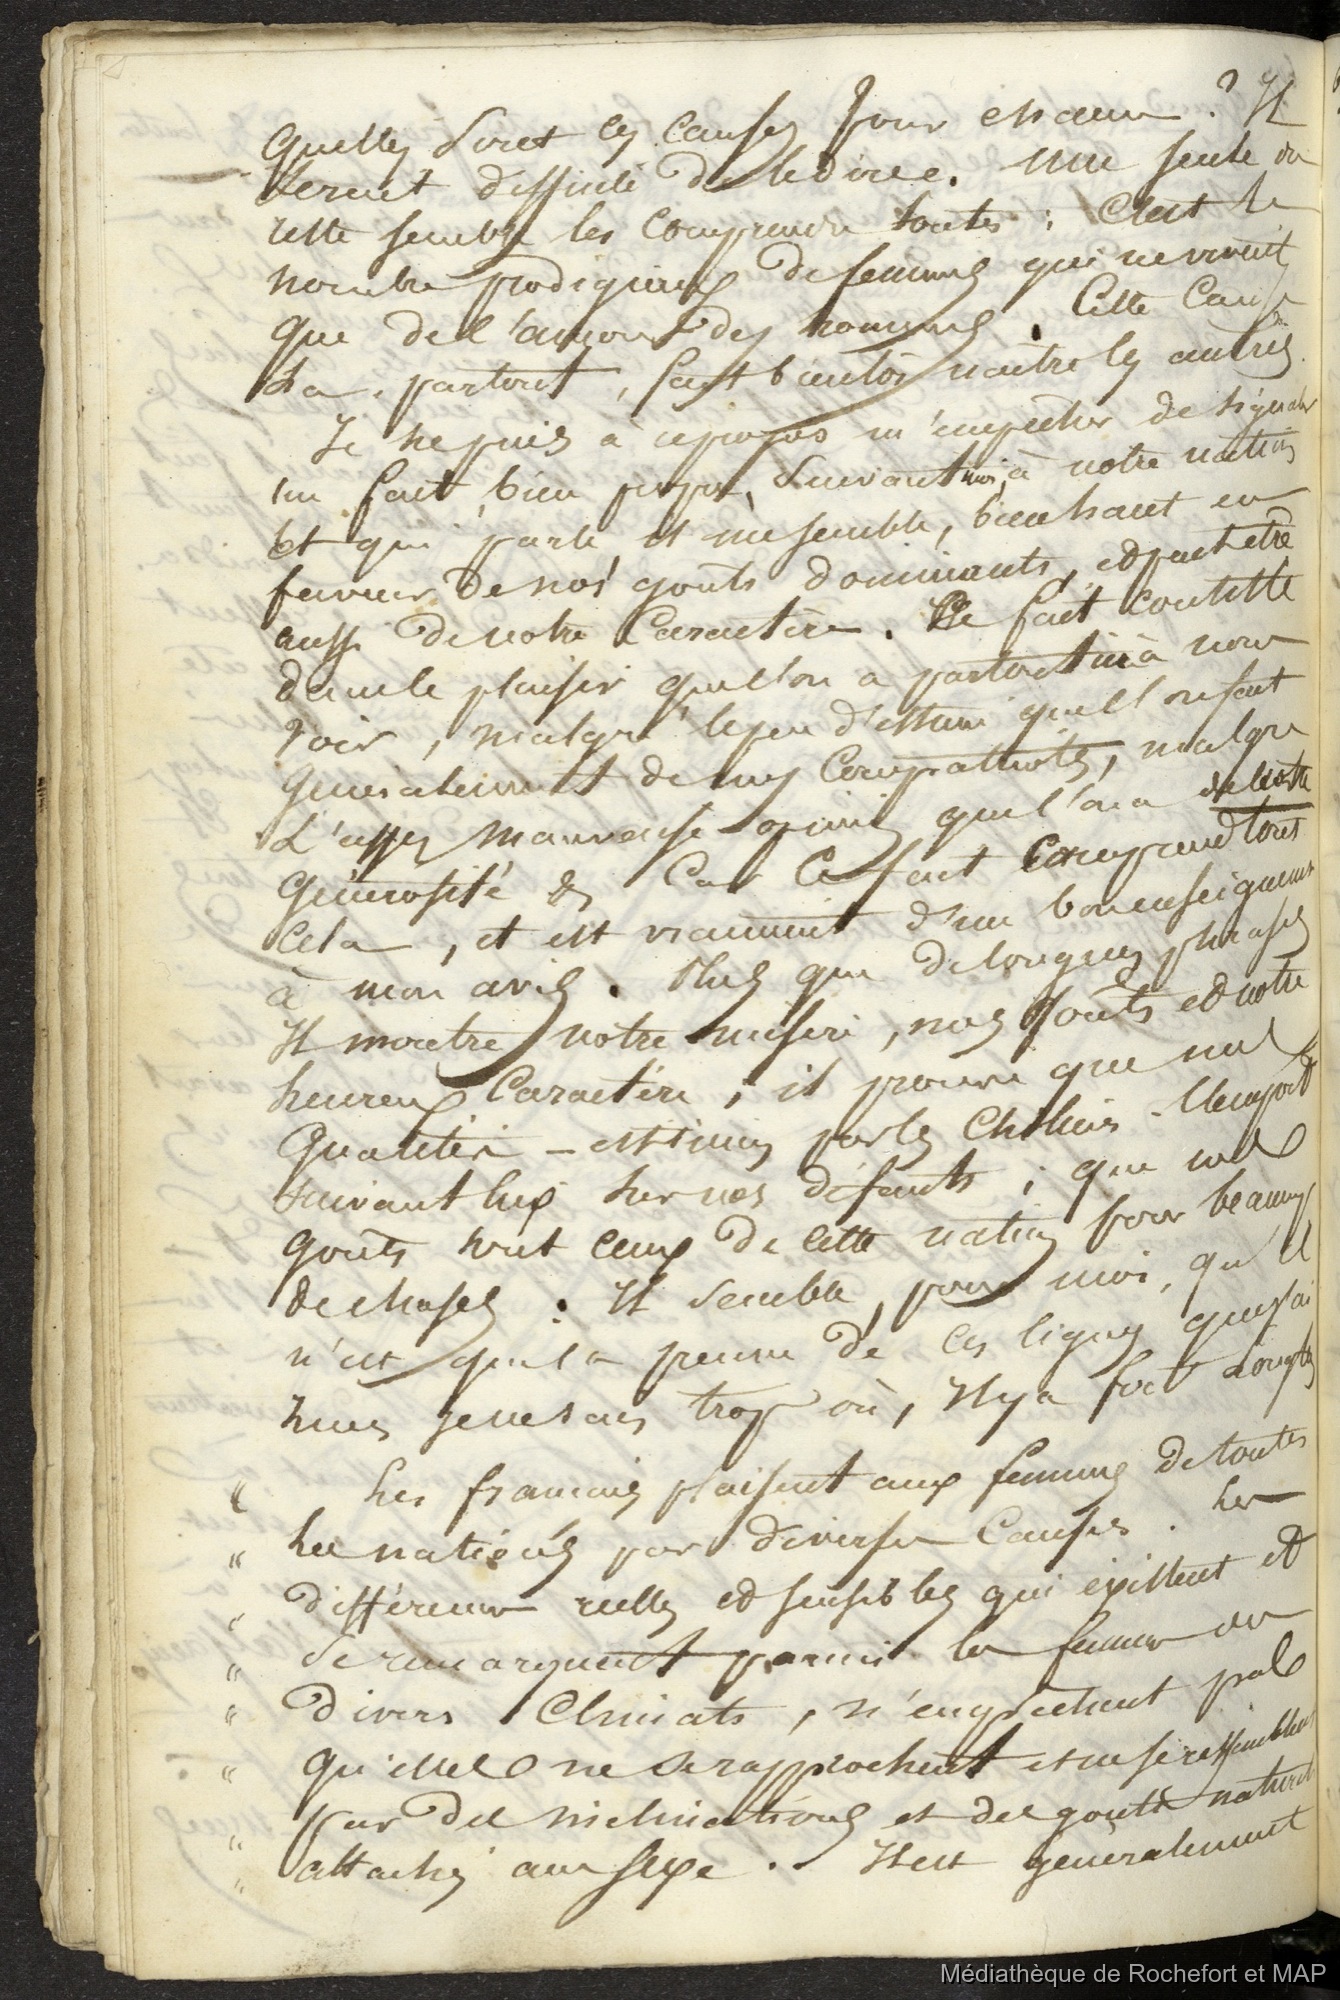 quelles sont les causes pour chacun ? Il
serait difficile de le dire. Une seule au
reste semble les comprendre toutes : C'est le
nombre prodigieux de femmes qui ne vivent
que de l'amour des hommes. Cette cause
là, partout, fait bientôt naitre les autres.
Je ne puis à ce propos m'empêcher de signaler
un fait, bien propre, suivant moi, à notre nation
et qui parle, il me semble, bien haut en
faveur de nos goûts dominants, et peut etre
aussi de notre Caractère. Ce fait consiste
dans le plaisir que l'on a partout à nous
voir, malgré le peu d'estime que l'on fait
généralement de mes Compatriotes, malgré
L'assez mauvaise opinion que l'on a de notre
générosité &. Car Ce fait comprend tout
cela, et est vraiment d'un bon enseignement
à mon avis. Plus que de longues phrases
Il montre notre misère, nos goûts et notre
heureux Caractère ; il prouve que nos
qualités estimées par les Chiliens l'emportent
suivant eux sur nos défauts ; que nos
goûts sont ceux de cette nation pour beaucoup
de choses. Il semble, pour moi, qu'il
n'est que la preuve de ces lignes que j'ai
lues je ne sais trop où, Il y a fort longtems
" Les français plaisent aux femmes de toutes
" les nations par diverses Causes. Les
" différences réelles et sensibles qui existent et
" se remarquent parmi les femmes en
" divers Climats, n'empêchent pas
" qu'elles ne se rapprochent et ne se ressemblent
" par des inclinations et des goûts naturels
" attachés au sexe. Il est généralement
Médiathèque de Rochefort et MAP